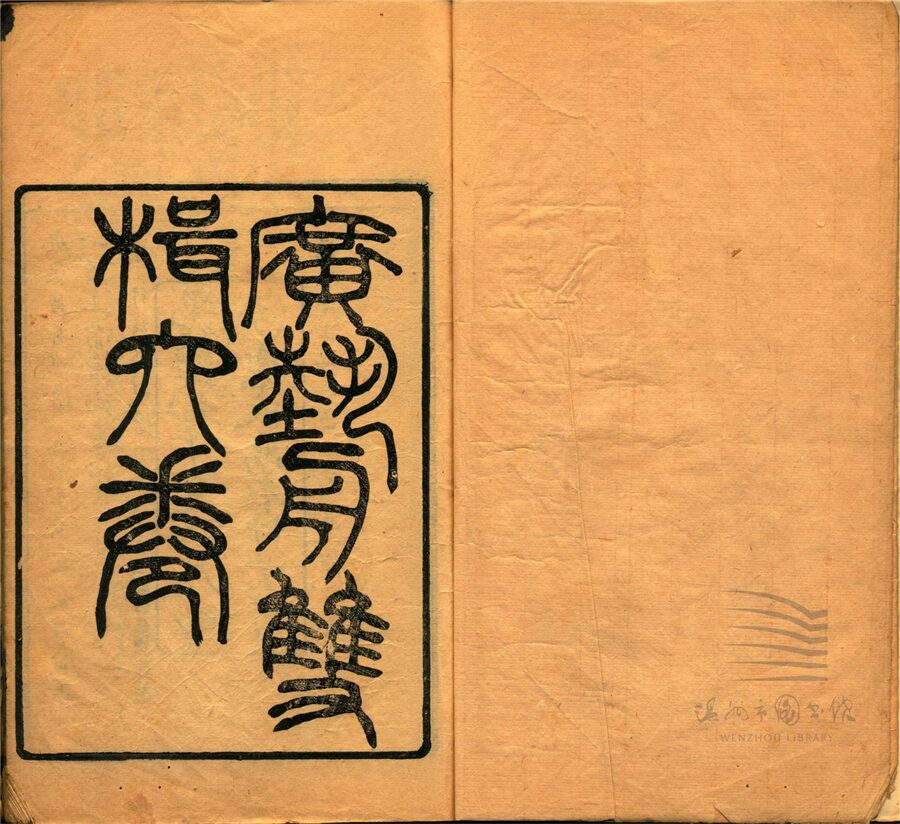 廣藝舟雙
楫六卷
温州市图书馆
WENZHOU LIBRARY